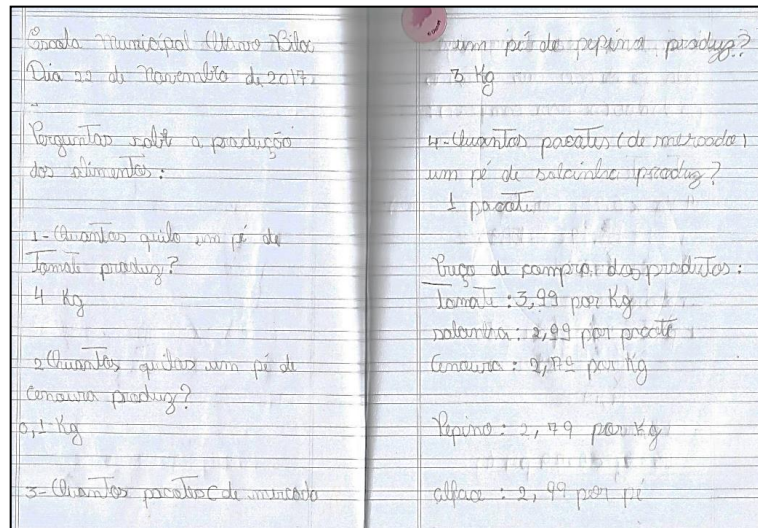 Escola Municipal Olavo Bilac
Dia 22 de Novembro de 2017.
Perguntas sobre a produção
dos alimentos:
1- Quantos quilo um pé de
Tomate produz?
4 Kg
2 Quantos quilos um pé de
Cenoura produz?
0,1 Kg
3- Quantos pacotes (de mercado
um pé de pepino produz?
3 Kg
4- Quantos pacotes (de mercado)
um pé de salcinha produz?
1 pacote
Preço de compra dos produtos:
Tomate : 3,99 por Kg
salcinha : 2,99 por pacote
Cenoura : 2,79 por Kg
Pepino : 2,79 por Kg
alface : 2,99 por pé